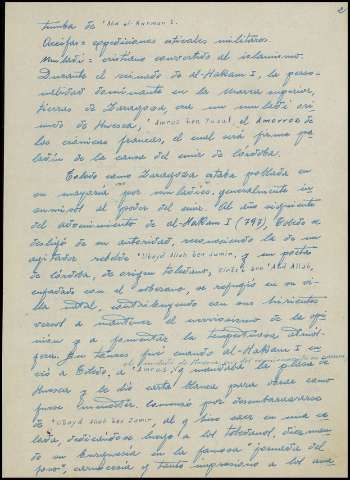 2
tumba de 'Abd al-Rahman I.
Aceifas = expediciones estivales militares.
Muladí = cristiano convertido al islamismo.
Durante el reinado de al-Hakam I, la perso-
nalidad dominante en la marca superior,
tierras de Zaragoza era un muladí ori-
undo de Huesca, 'Amrus ben Yusuf, el Amorroz de
las crónicas francas, el cual será firme pa-
ladín de la causa del emir de Córdoba.
Toledo como Zaragoza estaba poblada en
su mayoría por muladíes, generalmente in-
sumisos al poder del emir. Al año siguiente
del advenimiento de al-Hakam I (797), Toledo se
desligó de su autoridad, reconociendo la de un
agitador rebelde 'Ubayd Allah ben Jamir, y un poeta
de Córdoba, de origen toledano, Girbib ben 'Abd Allah,
enfadado con el soberano, se refugió en su vi-
lla natal, contribuyendo con sus hirientes
versos a mantener el nerviosismo de la opi-
nión y a fomentar la tempestuosa atmós-
fera. Fue cuando al-Hakam I en-
vió a Toledo, a 'Amrus, que mandaba la plaza de
Huesca y le dió carta blanca para obrar como
fuese menester, comenzó por desembarazarse
de 'Ubayd Allah ben Jamir, al que hizo caer en una ce-
lada, dedicándose luego a los toledanos, diezman-
do su burguesía en la famosa "jornada del
foso", carnicería que tanto impresionó a los ana-